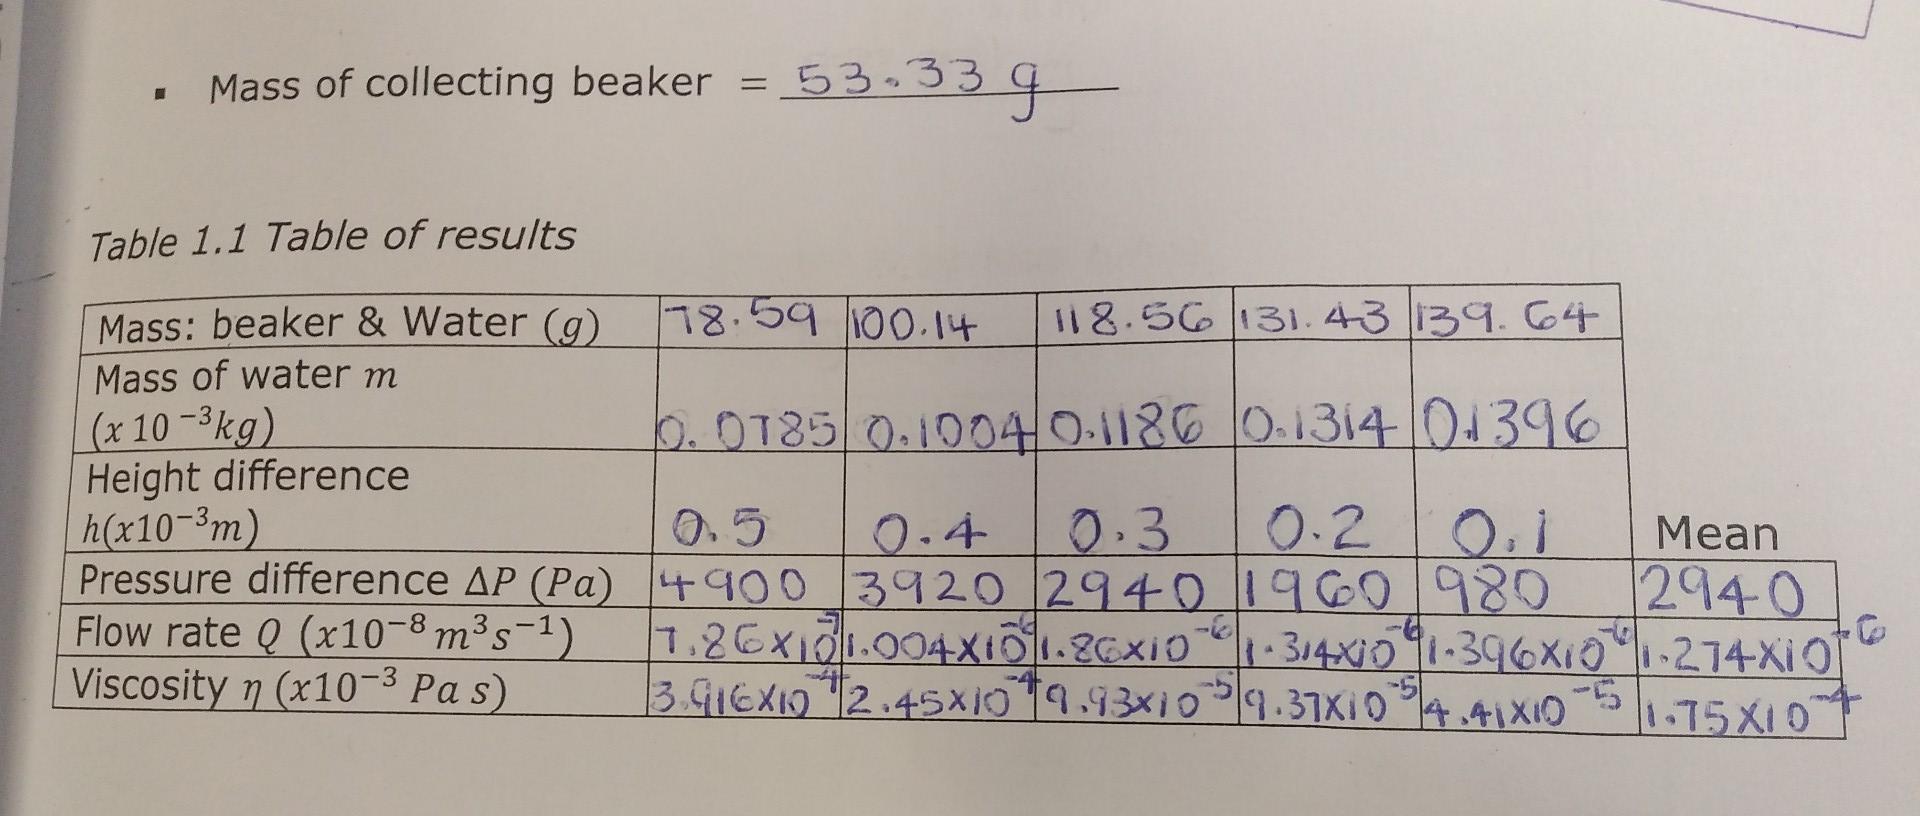 ▪ Mass of collecting beaker = 53.33 g
Table 1.1 Table of results
Mass: beaker & Water (g) 78.59 100.14 118.56 131.43 139.64
Mass of water m
(x 10⁻³kg) 0.0785 0.1004 0.1186 0.1314 0.1396
Height difference
h(x10⁻³m) 0.5 0.4 0.3 0.2 0.1 Mean
Pressure difference ΔP (Pa) 4900 3920 2940 1960 980 2940
Flow rate Q (x10⁻⁸ m³s⁻¹) 7.86×10⁻⁷ 1.004×10⁻⁶ 1.86×10⁻⁶ 1.314×10⁻⁶ 1.396×10⁻⁶ 1.274×10⁻⁶
Viscosity η (x10⁻³ Pa s) 3.916×10⁻⁴ 2.45×10⁻⁴ 9.93×10⁻⁵ 9.37×10⁻⁵ 4.41×10⁻⁵ 1.75×10⁻⁴